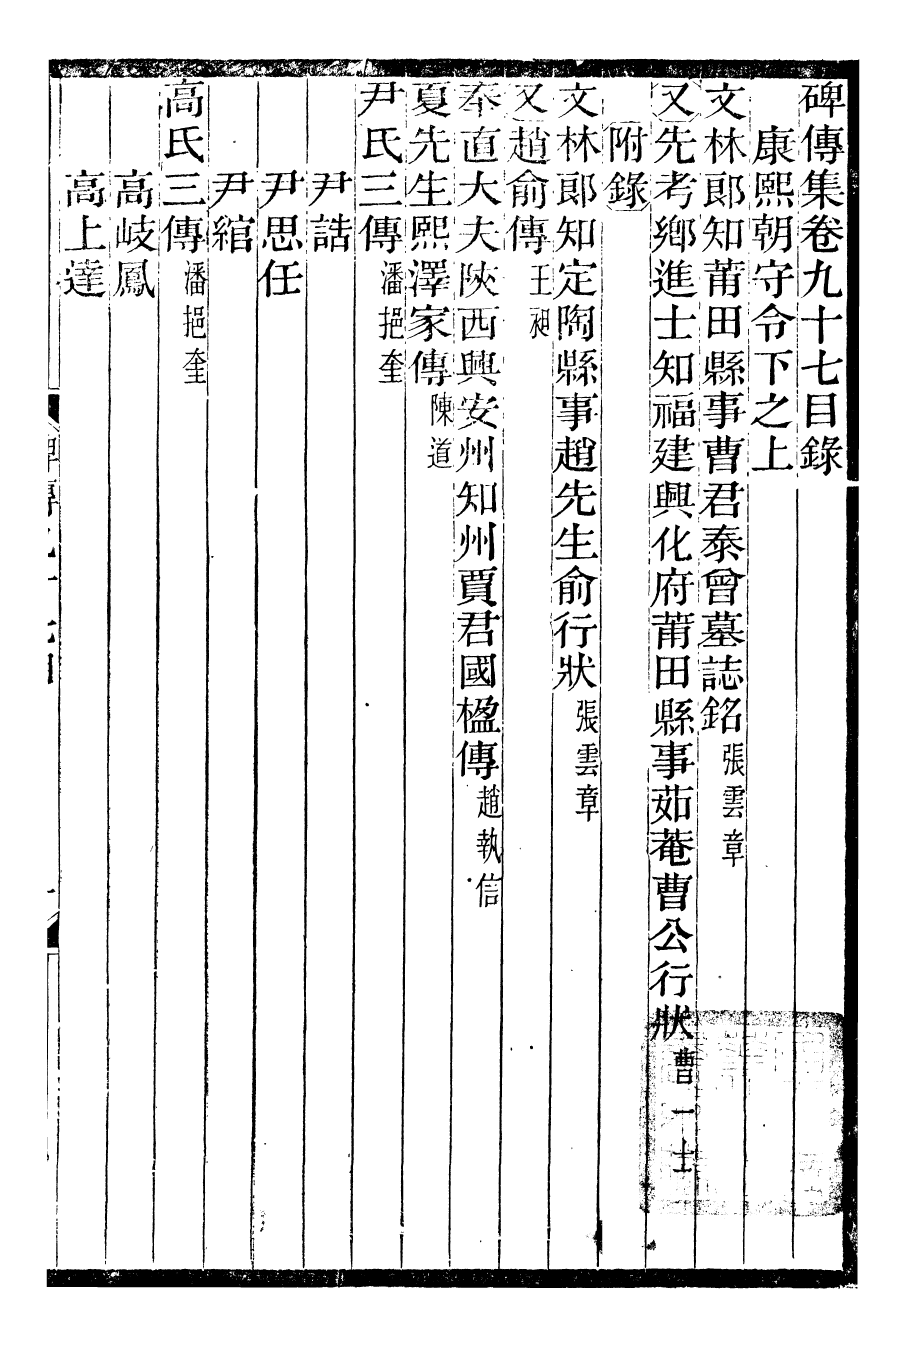 碑傳集卷九十七目錄
康熙朝守令下之上
文林郞知莆田縣事曹君泰曾墓誌銘 張雲章
又先考鄉進士知福建興化府莆田縣事茹菴曹公行狀 曹一士
附錄
文林郞知定陶縣事趙先生俞行狀 張雲章
又趙俞傳 王昶
奉直大夫陝西興安州知州賈君國楹傳 趙執信
夏先生熙澤家傳 陳道
尹氏三傳 潘挹奎
尹誥
尹思任
尹綰
高氏三傳 潘挹奎
高岐鳳
高上達